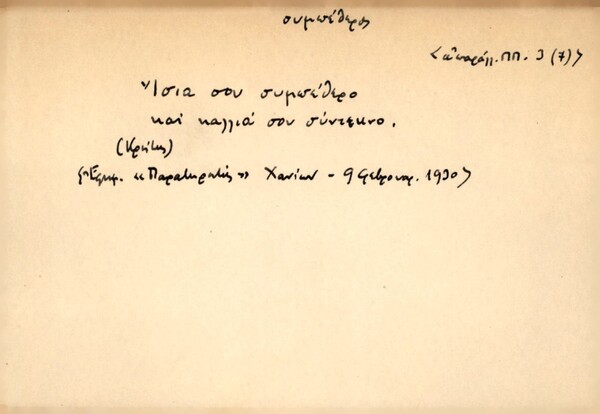 συμπέθερος
ΠΠ. 3 (7)>
Ἴσια σου συμπέθερο
καί καλλιά σου σύντεκνο.
(Κρήτης)
<Ἐφημ. «Παρατηρητής» Χανίων - 9 Φεβρουαρ. 1930>